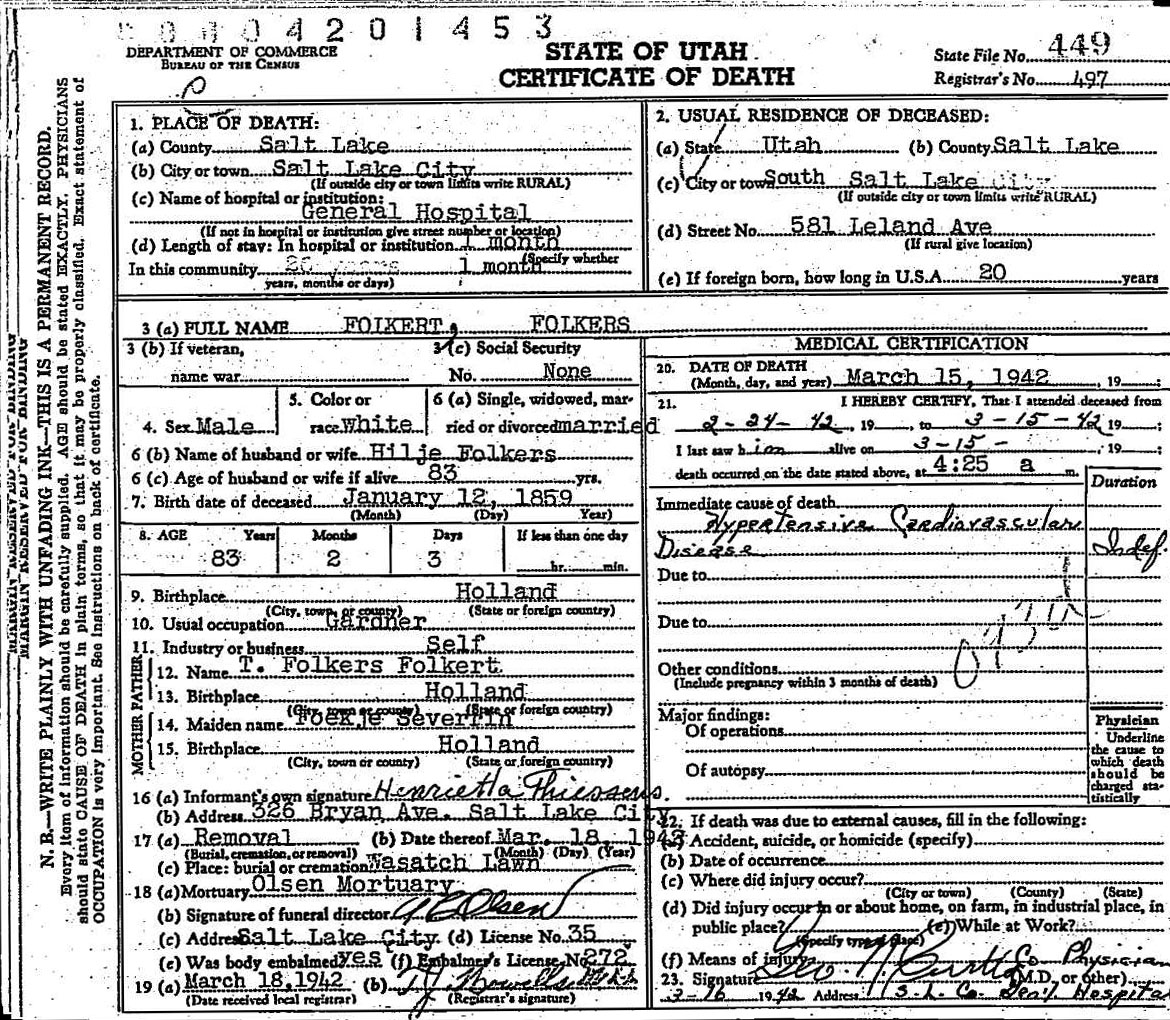 0 4 2 0 1 4 5 3
DEPARTMENT OF COMMERCE
BUREAU OF THE CENSUS
STATE OF UTAH
CERTIFICATE OF DEATH
State File No. 449
Registrar's No. 497
MARGIN RESERVED FOR BINDING
N. B.—WRITE PLAINLY WITH UNFADING INK—THIS IS A PERMANENT RECORD.
Every item of information should be carefully supplied. AGE should be stated EXACTLY. PHYSICIANS
should state CAUSE OF DEATH in plain terms, so that it may be properly classified. Exact statement of
OCCUPATION is very important. See instructions on back of certificate.
1. PLACE OF DEATH:
(a) County Salt Lake
(b) City or town Salt Lake City
(If outside city or town limits write RURAL)
(c) Name of hospital or institution:
General Hospital
(If not in hospital or institution give street number or location)
(d) Length of stay: In hospital or institution 1 month
(Specify whether
In this community 20 years 1 month
years, months or days)
2. USUAL RESIDENCE OF DECEASED:
(a) State Utah (b) County Salt Lake
(c) City or town South Salt Lake City
(If outside city or town limits write RURAL)
(d) Street No. 581 Leland Ave
(If rural give location)
(e) If foreign born, how long in U.S.A. 20 years
3 (a) FULL NAME FOLKERT, FOLKERS
3 (b) If veteran,
name war
3 (c) Social Security
No. None
4. Sex Male
5. Color or
race White
6 (a) Single, widowed, mar-
ried or divorced married
6 (b) Name of husband or wife Hilje Folkers
6 (c) Age of husband or wife if alive 83 yrs.
7. Birth date of deceased January 12, 1859
(Month) (Day) (Year)
8. AGE Years Months Days If less than one day
83 2 3 hr. min.
9. Birthplace Holland
(City, town, or county) (State or foreign country)
10. Usual occupation Gardner
11. Industry or business Self
FATHER
12. Name T. Folkers Folkert
13. Birthplace Holland
(City, town or county) (State or foreign country)
MOTHER
14. Maiden name Foekje Severrin
15. Birthplace Holland
(City, town or county) (State or foreign country)
16 (a) Informant's own signature Henrietta Thiessens.
(b) Address 326 Bryan Ave. Salt Lake City
17 (a) Removal (b) Date thereof Mar. 18, 1942
(Burial, cremation, or removal) (Month) (Day) (Year)
(c) Place: burial or cremation Wasatch Lawn
18 (a) Mortuary Olsen Mortuary
(b) Signature of funeral director Olsen
(c) Address Salt Lake City. (d) License No. 35
(e) Was body embalmed yes (f) Embalmer's License No. 272
19 (a) March 18, 1942 (b) T. J. Howells
(Date received local registrar) (Registrar's signature)
MEDICAL CERTIFICATION
20. DATE OF DEATH
(Month, day, and year) March 15, 1942, 19
21. I HEREBY CERTIFY, That I attended deceased from
2-24-42, 19, to 3-15-42 19;
I last saw him alive on 3-15-, 19;
death occurred on the date stated above, at 4:25 a m.
Duration
Immediate cause of death
Hypertensive Cardiovascular
Disease Indef.
Due to
Due to
Other conditions
(Include pregnancy within 3 months of death)
Major findings:
Of operations
Of autopsy
Physician
Underline
the cause to
which death
should be
charged sta-
tistically
22. If death was due to external causes, fill in the following:
(a) Accident, suicide, or homicide (specify)
(b) Date of occurrence
(c) Where did injury occur?
(City or town) (County) (State)
(d) Did injury occur in or about home, on farm, in industrial place, in
public place? (e) While at Work?
(Specify type of place)
(f) Means of injury
23. Signature Geo. N. Curtis Co. Physician
(M.D. or other)
3-16 1942 Address S. L. Co. Gen'l Hospital